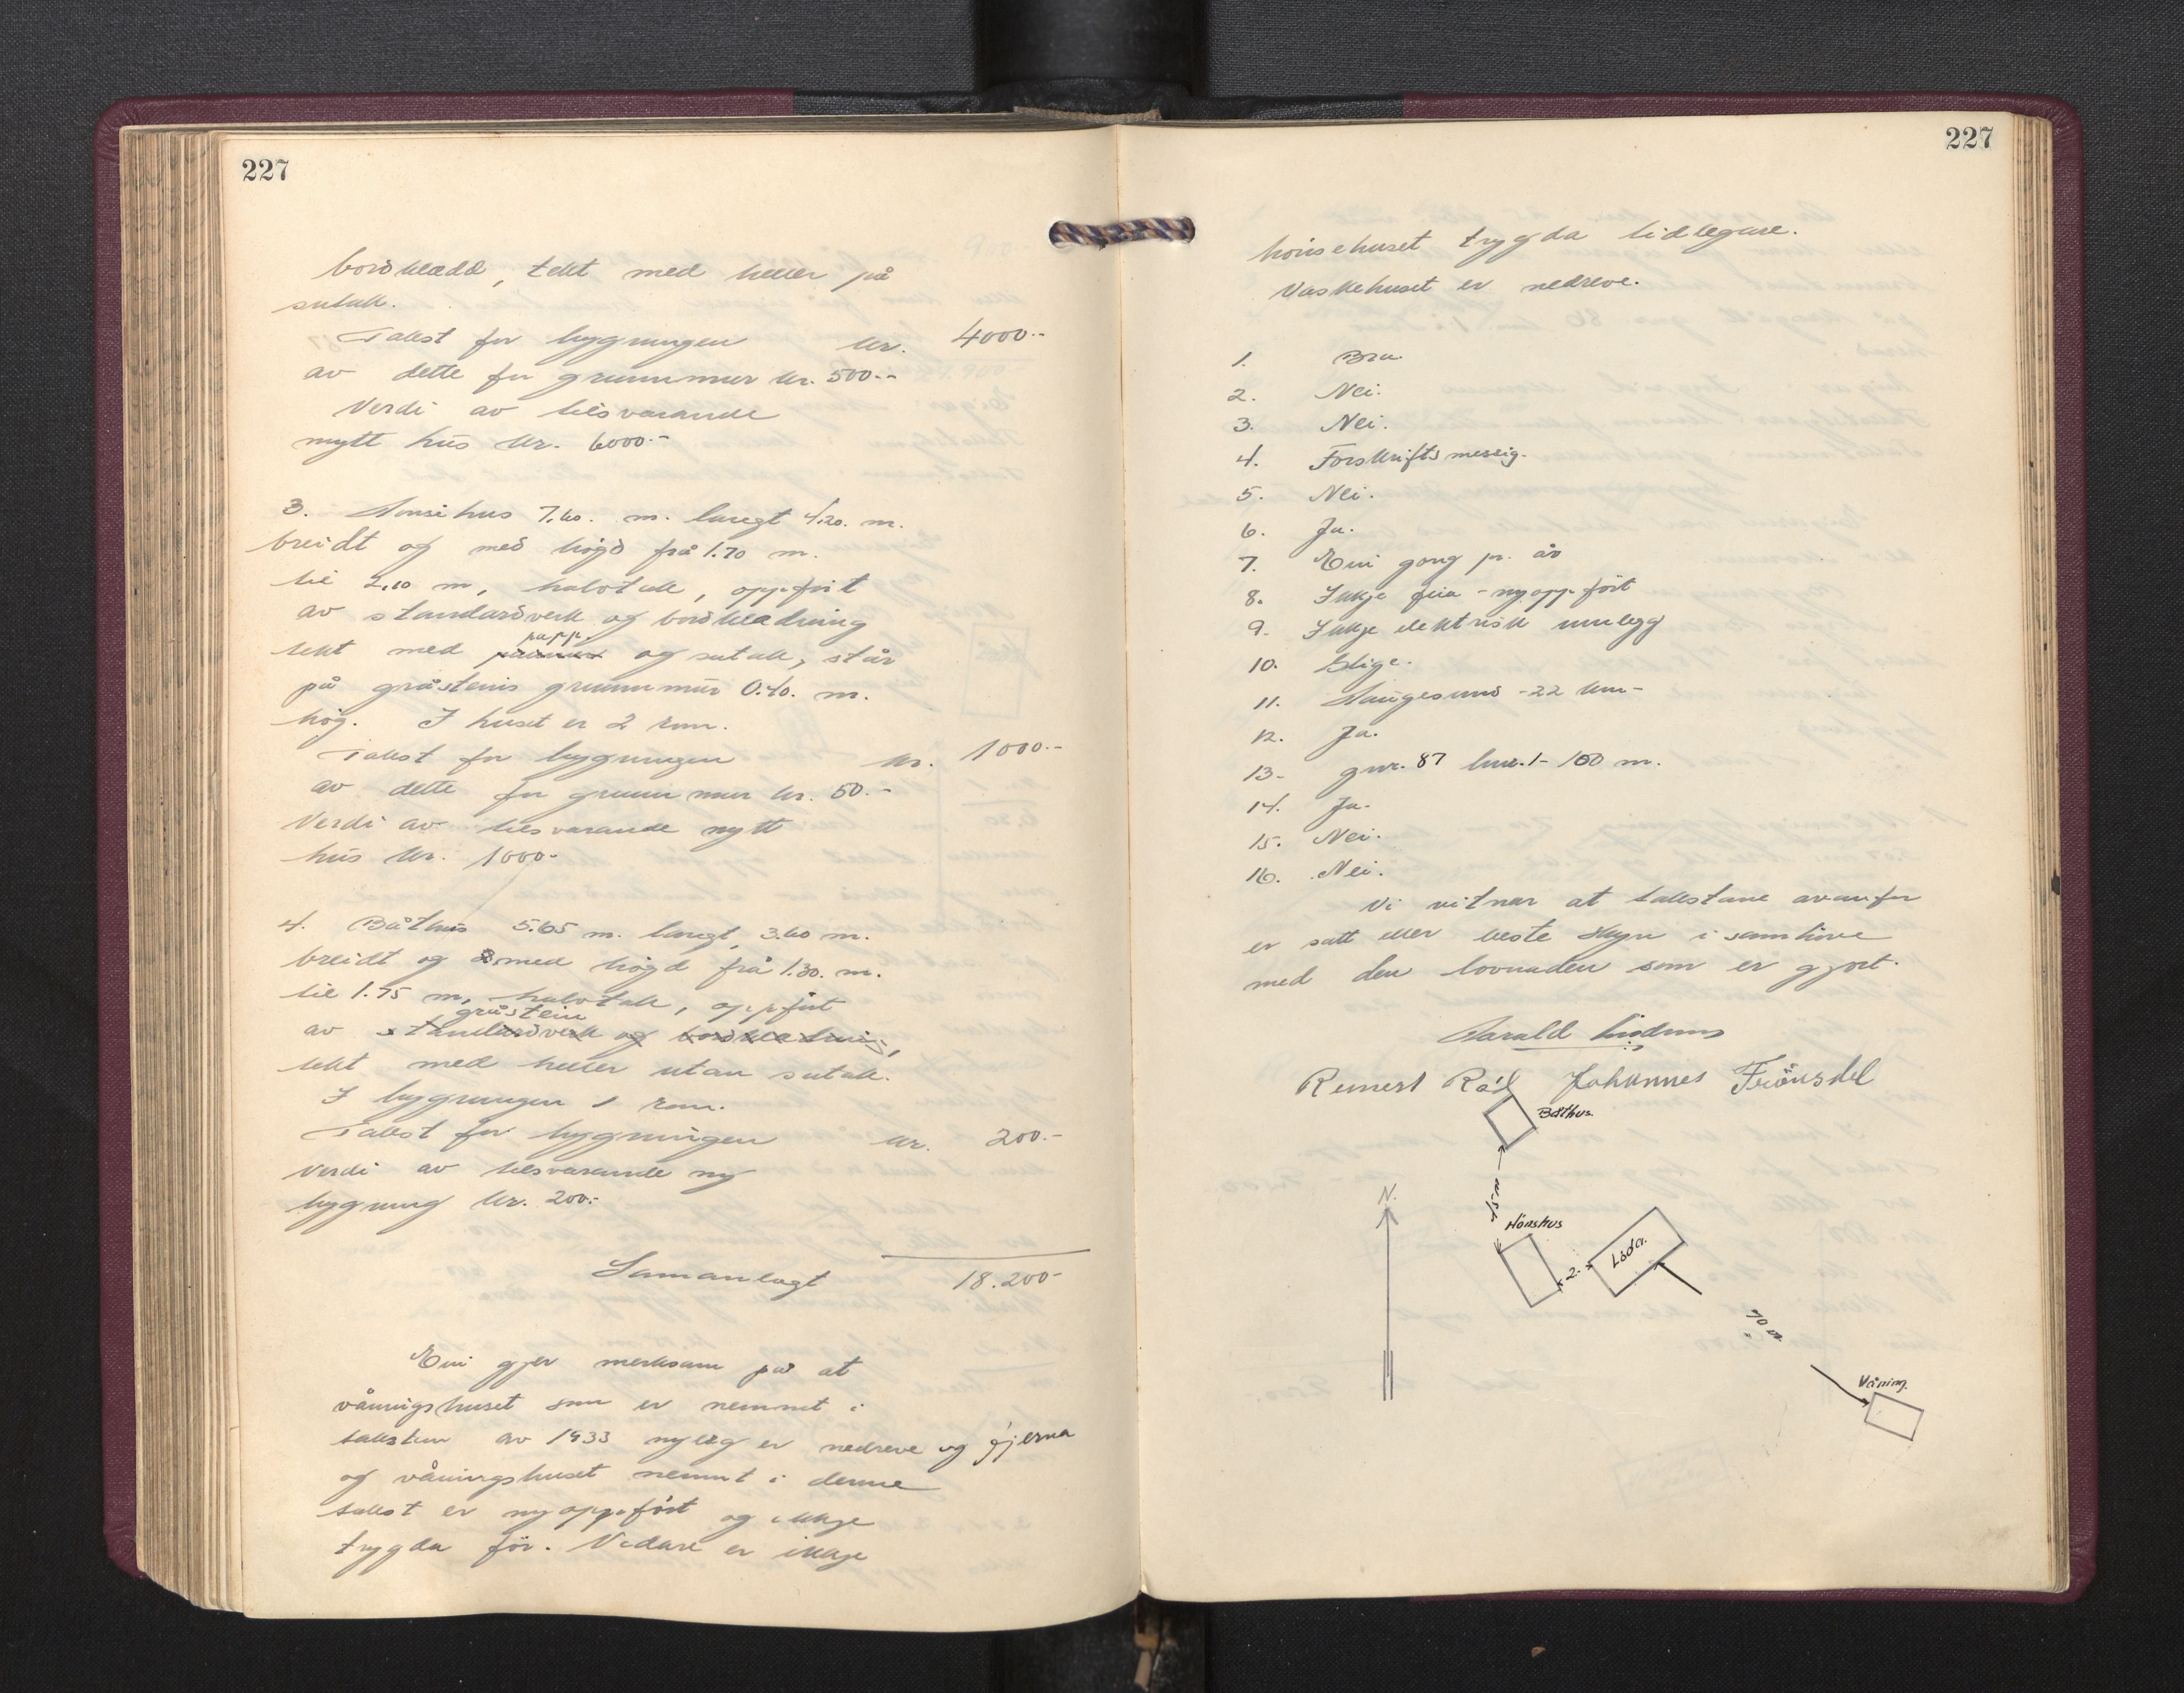 227
bordkledd, tekt med heller på
sutak.
Takst for bygningen kr. 4000.-
av dette for grunnmur kr. 500.-
Verdi av tilsvarande
nytt hus kr. 6000.-
3. Hønsehus 7,60. m. langt 4,20. m.
breidt og med högd frå 1.70 m.
til 2,10 m, halvtak, oppført
av standardverk og bordkledning
tekt med papp. og sutak, står
på gråsteins grunnmur 0.40. m.
høg. I huset er 2 rom.
Takst for bygningen kr. 1000.-
av dette for grunnmur kr. 50.-
Verdi av tilsvarande nytt
hus kr. 1000.-
4. Båthus 5.65 m. langt, 3.60 m.
breidt og med högd frå 1.30. m.
til 1.75 m, halvtak, oppført
gråstein
av standardverk og bordkledning,
tekt med heller utan sutak.
I bygningen 1 rom.
Takst for bygningen kr. 200.-
Verdi av tilsvarande ny
bygning kr. 200.-
Samanlagt 18.200.-
Ein gjer merksam på at
våningshuset som er nemnt i
taksten av 1933 nyleg er nedreve og fjerna
og våningshuset nemnt i denne
takst er nyoppført og ikkje
trygda för. Vidare er ikkje
227
hönsehuset trygda tidlegare.
Vaskehuset er nedreve.
1. Bra
2. Nei.
3. Nei.
4. Forskriftsmessig.
5. Nei.
6. Ja.
7. Ein gong pr. år
8. Ikkje feia - nyoppfört
9. Ikkje elektrisk innlegg
10. Elige.
11. Haugesund - 22 km -
12. Ja.
13. gnr. 87 bnr. 1 - 100 m.
14. Ja.
15. Nei.
16. Nei.
Vi vitnar at takstane ovanfor
er sett etter beste skjøn i samhøve
med den lovnaden som er gjort.
Harald Lindnus
Reinert Råd Johannes Frönsdal
Båthus.
15 m
N.
Hönshus
2.
Löda.
70 m.
Våning.